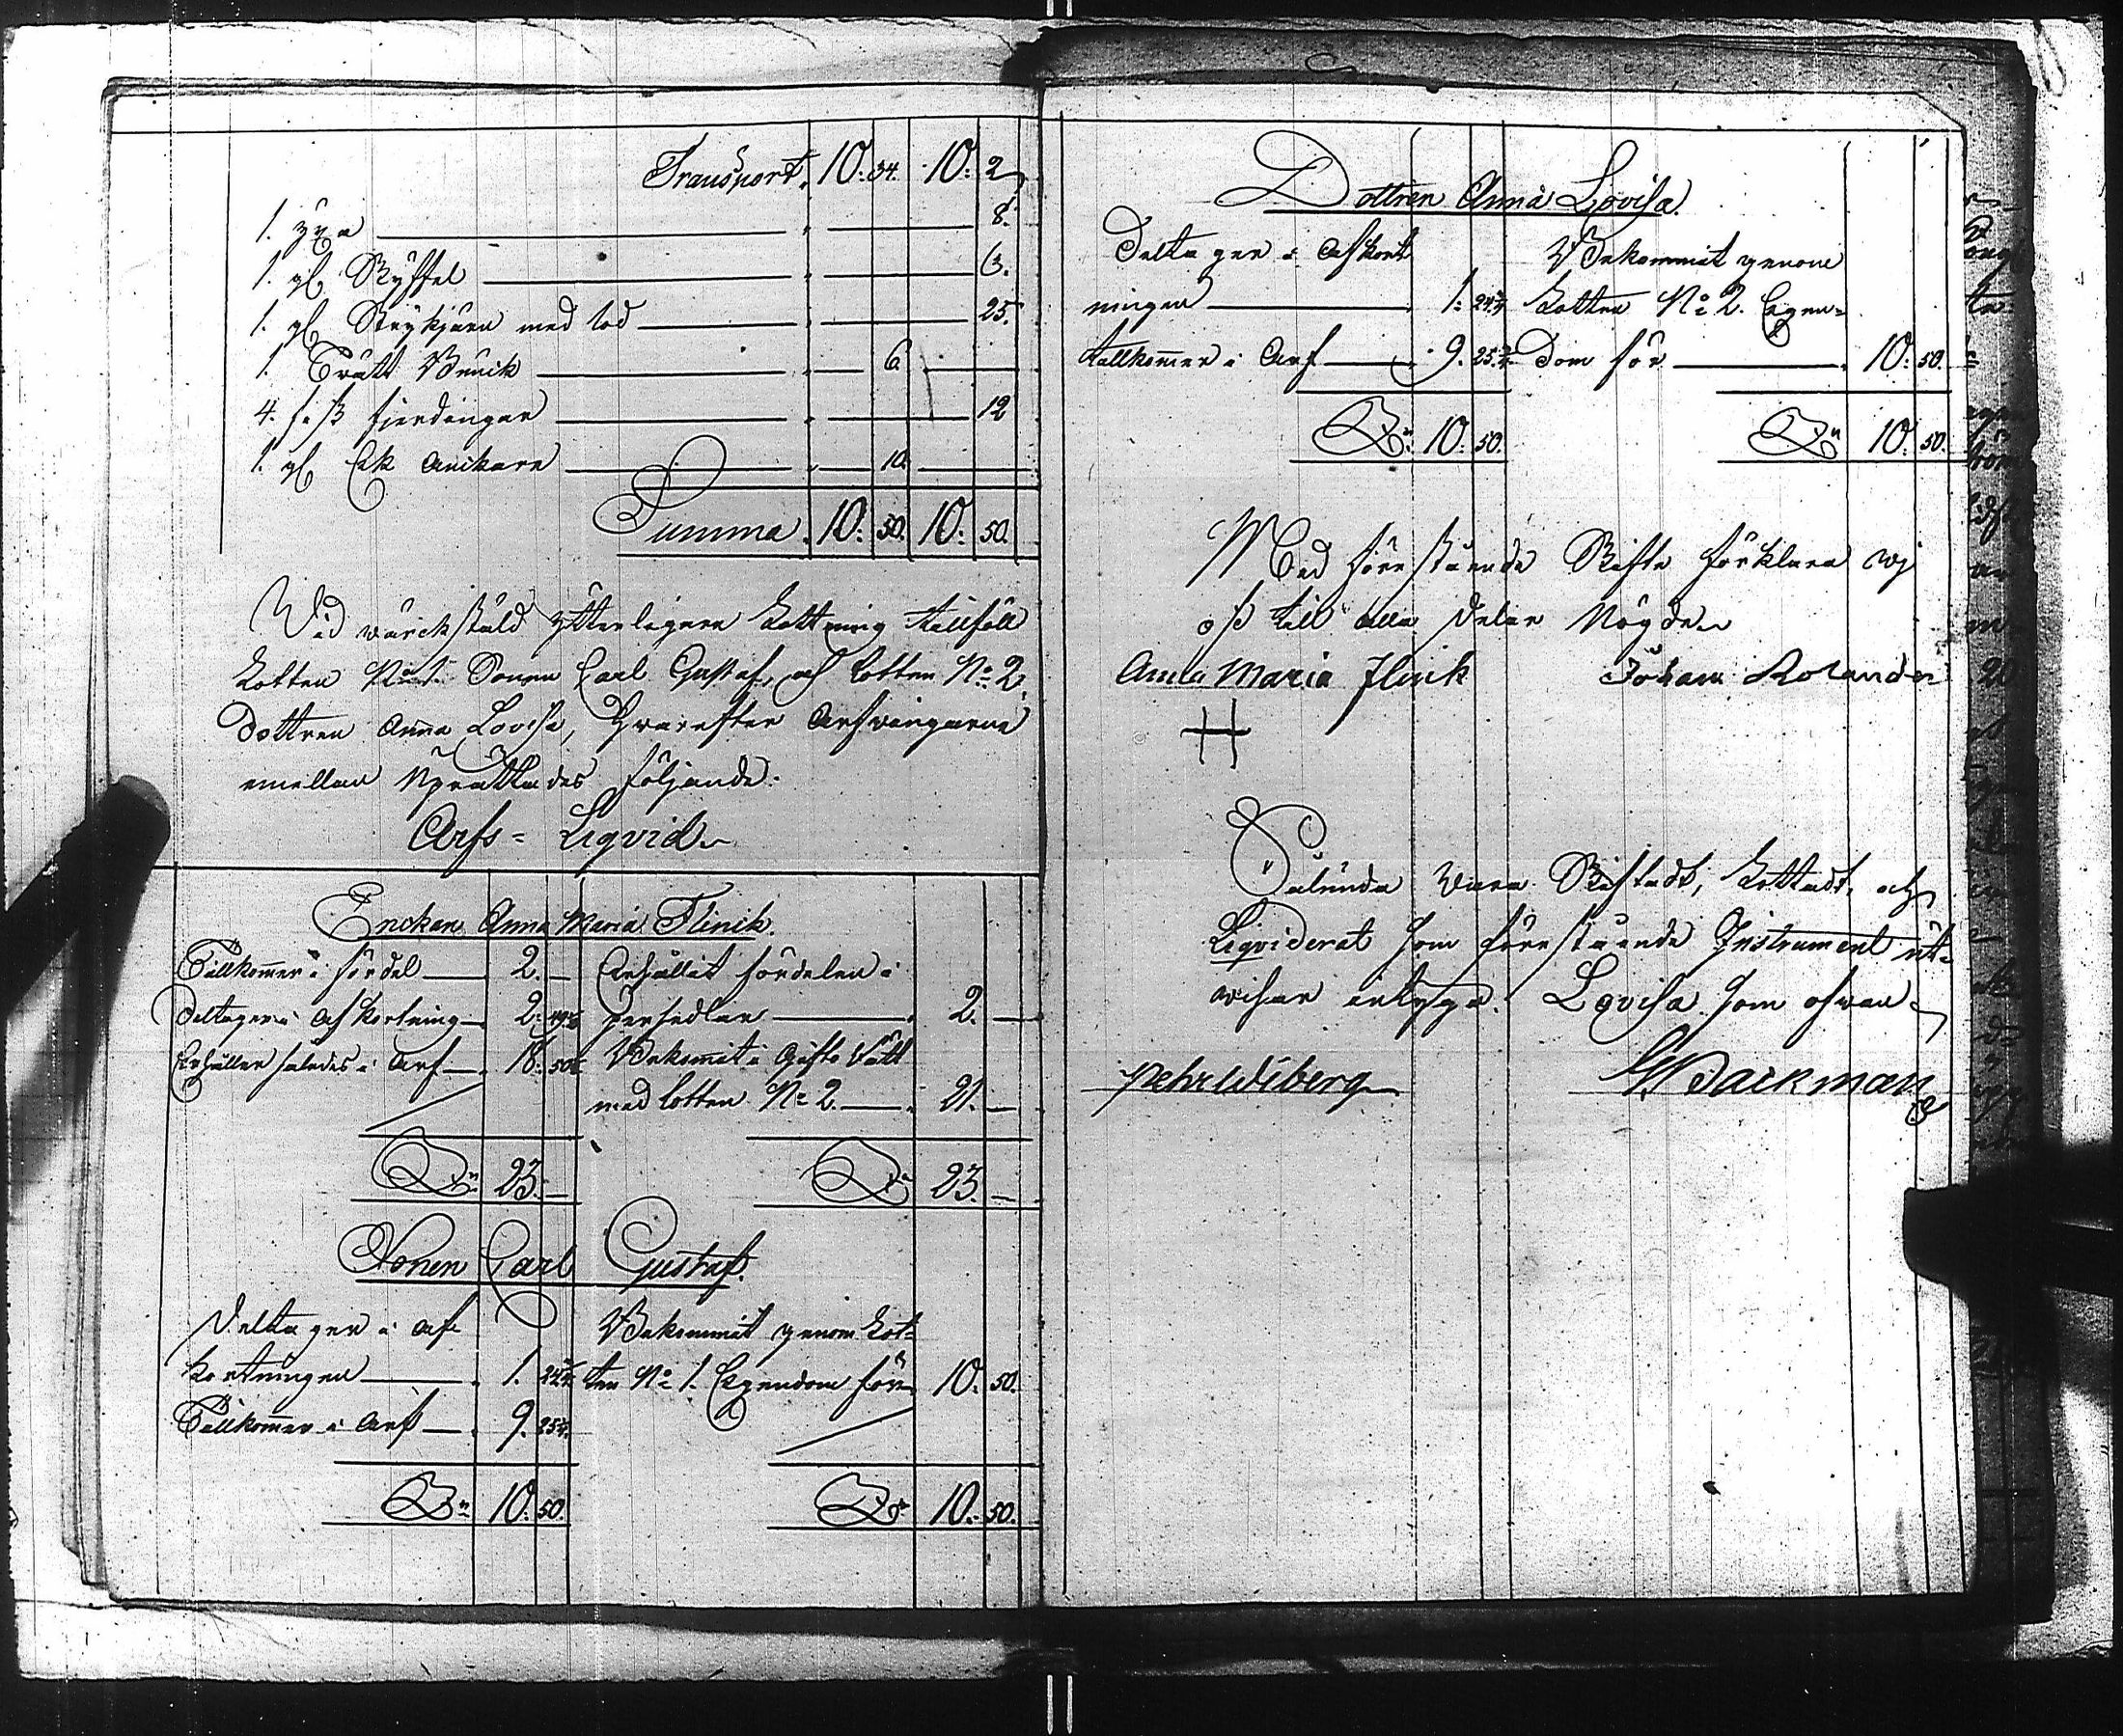 Transport. 10. 34. 10. 2
1. yxa 8.
1. gl. Skyffel 3.
1. gl. Strykjärn med lod 25.
1. Tvätt Bunk 6.
4. st. fjerdingar 12
1. gl. Ek ankare 10.
Summa. 10. 50. 10. 50.
Wid wärckstäld ytterligare Lottning tillföll
Lotten No 1. Sonen Carl Gustaf, och Lotten No 2.
Dottren Anna Lovisa, hwarefter Arfwingarne
emellan Uprättades följande:
Arfs- Liqvid
Enckan Anna Maria Flinck.
Tillkommer i fördel 2. — Erhållit fördelen i
Deltager i afkortning 2. persedlar 2. —
Erhåller således i Arf 18. Bekommit i Gifto Rätt
med lotten No 2. 21. —
Sn 23. — Sn 23. —
Sonen Carl Gustaf.
Deltager i af- Bekommit genom Lot-
kortningen 1. 24 ten No 1. Egendom för 10. 50.
Tillkommer i Arf 9. 25
Sn 10. 50. Sn 10. 50.
Dottren Anna Lovisa.
Deltager i afkort Bekommit genom
ningen 1. 24 Lotten No 2. Egen-
tillkommer i Arf 9. 25 dom för 10. 50.
Sn 10. 50. Sn 10. 50.
Med förestående Skifte förklara wj
oß till alla delar Nögde
Anna Maria Flink Johan Rolander
Sålunda vara Skiftadt, Lottadt, och
Liqviderat som förestående Instrument ut-
wisar intyga. Lovisa som ofwan
Pehr Wiberg G. Backman